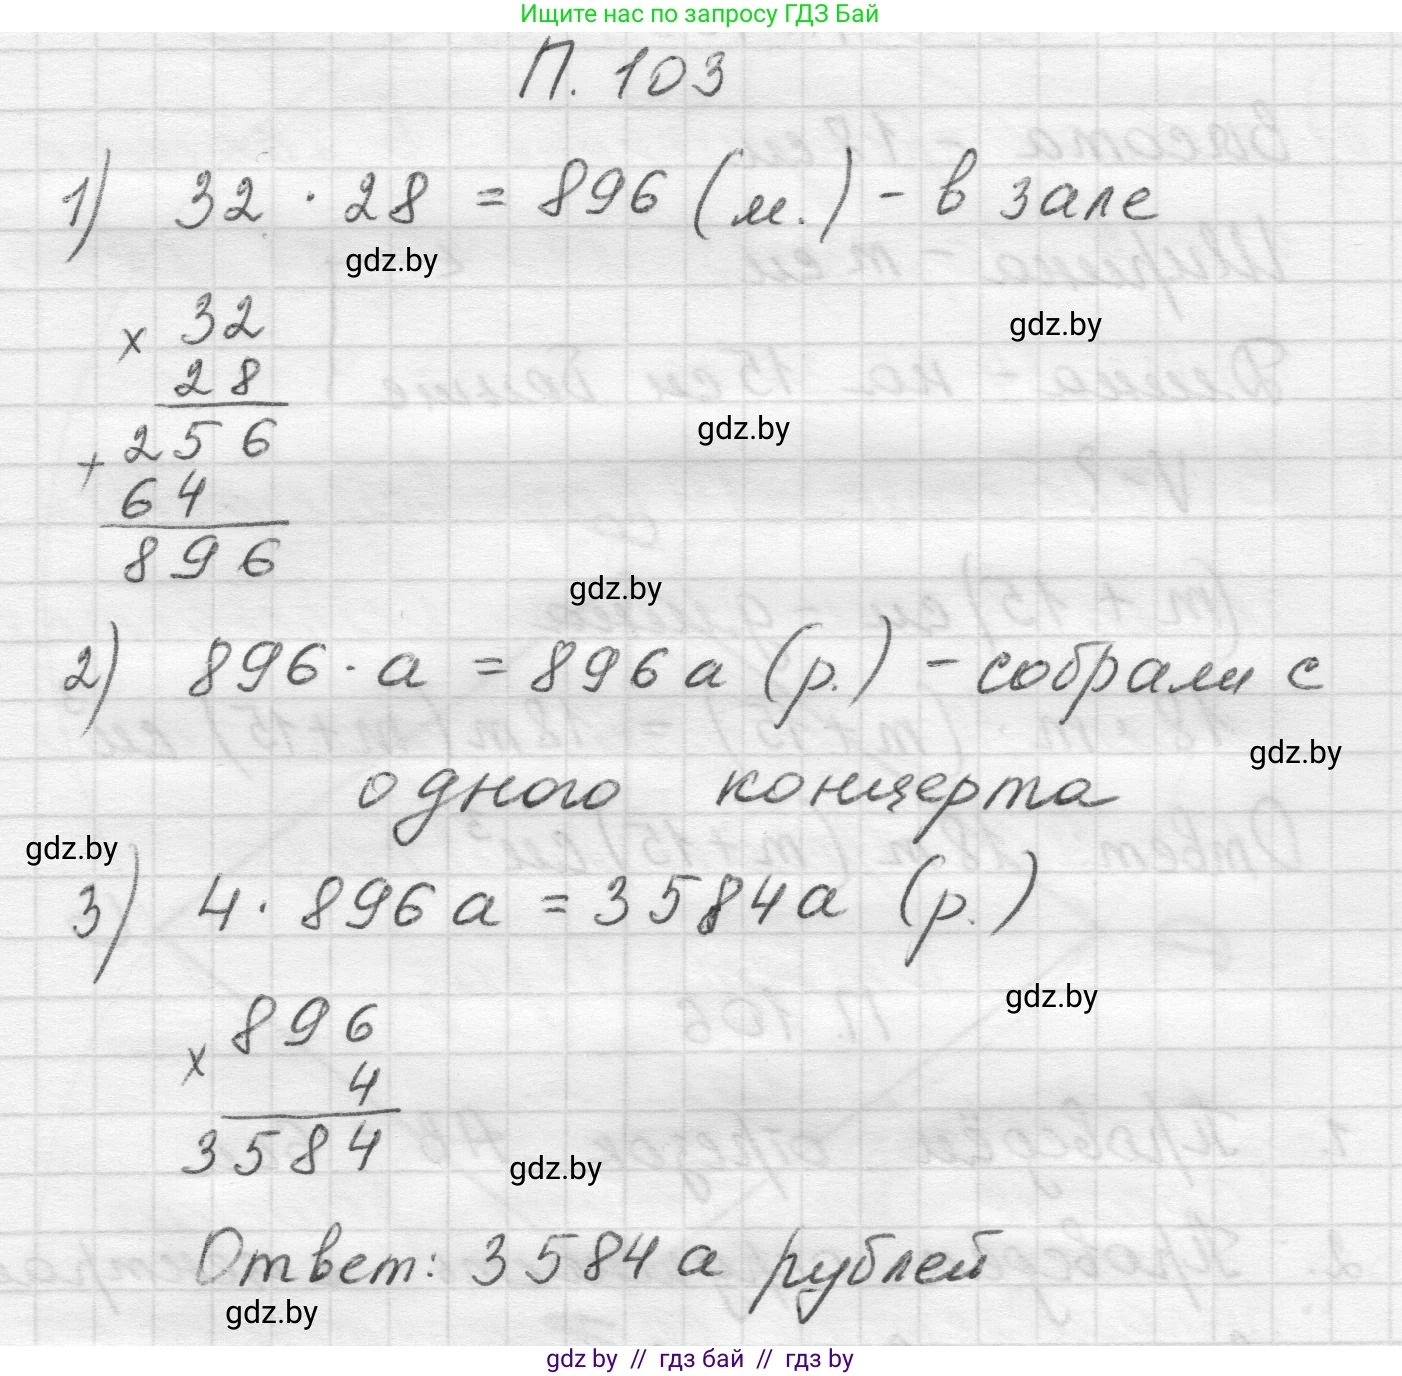 Ищите нас по запросу ГДЗ Бай
П. 103
1) 32 · 28 = 896 (м.) - в зале
gdz.by
× 32
gdz.by
28
gdz.by
+ 256
64
896
gdz.by
2) 896 · а = 896а (р.) - собрали с
gdz.by
одного концерта
gdz.by
3) 4 · 896а = 3584а (р.)
gdz.by
× 896
4
3584
gdz.by
Ответ: 3584а рублей
gdz.by
gdz by // гдз бай // гдз by